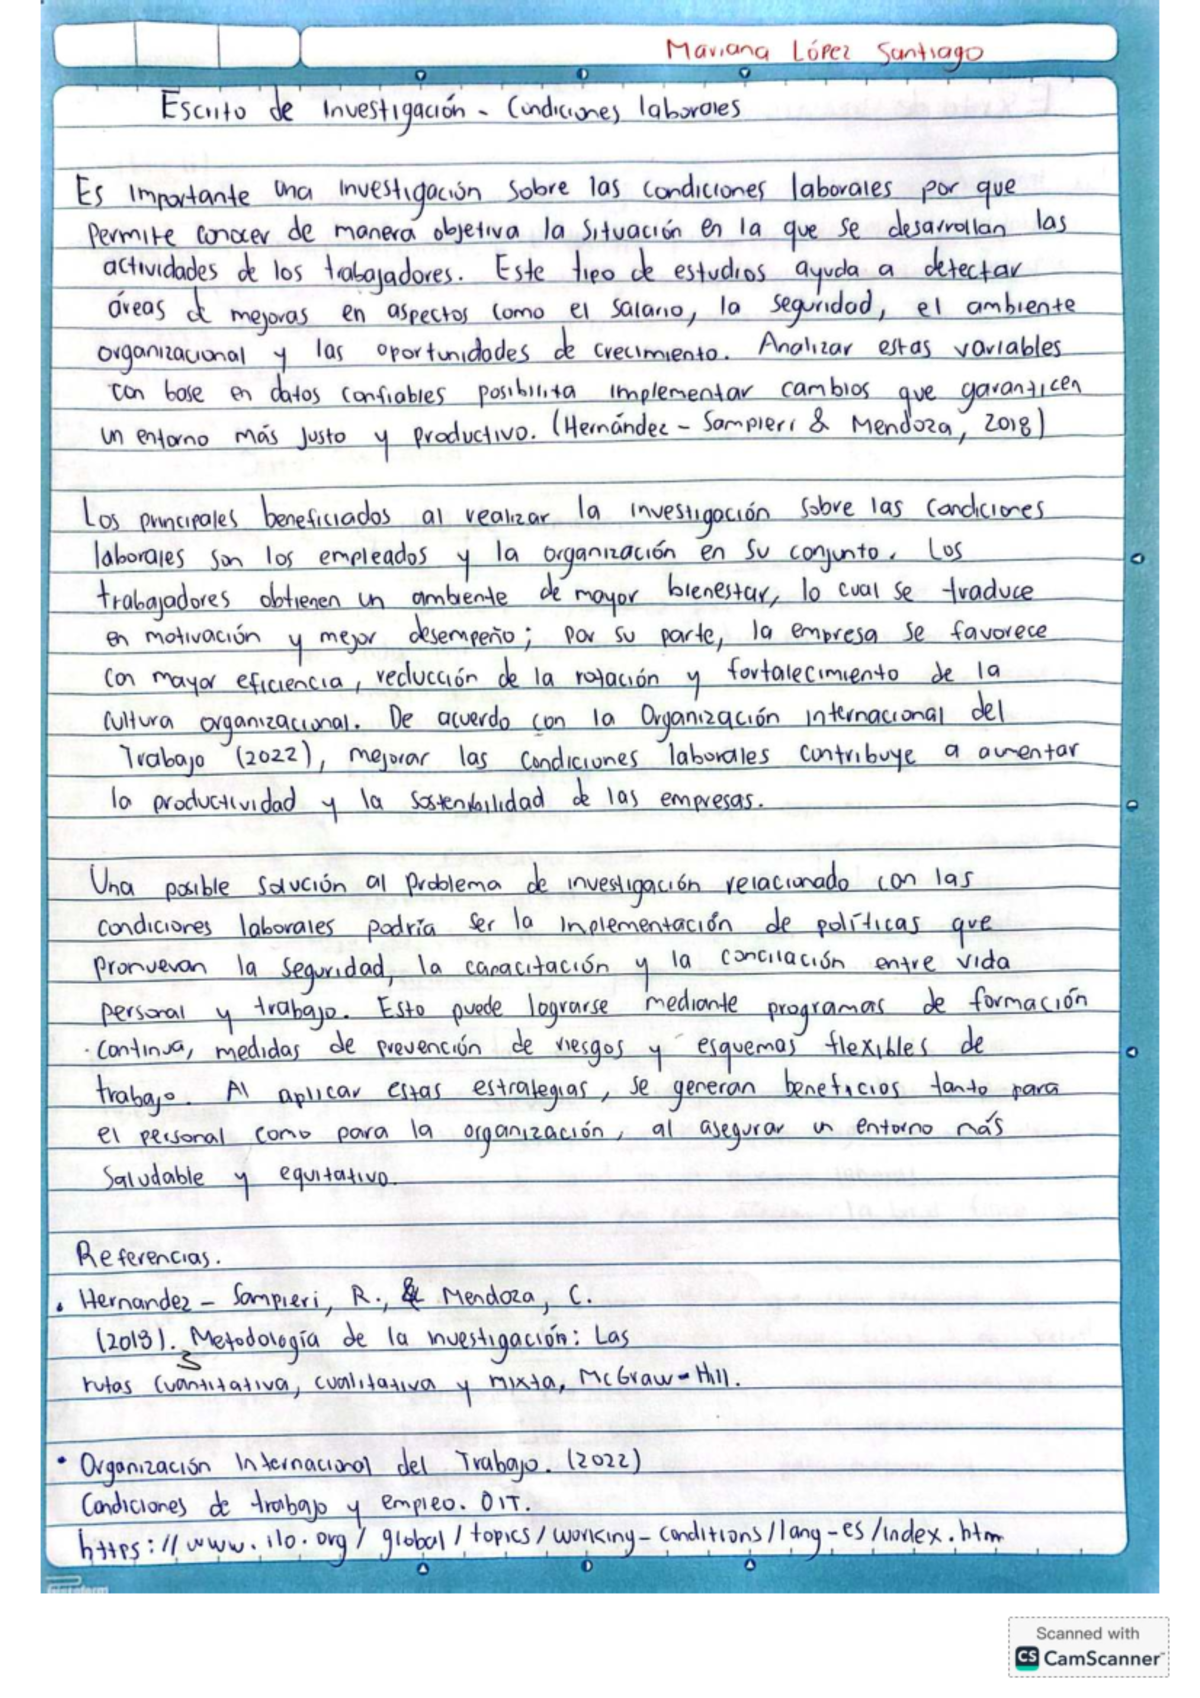 Mariana López Santiago
Escrito de investigación - Condiciones laborales
Es importante una investigación sobre las condiciones laborales por que
permite conocer de manera objetiva la situación en la que se desarrollan las
actividades de los trabajadores. Este tipo de estudios ayuda a detectar
áreas de mejoras en aspectos como el salario, la seguridad, el ambiente
organizacional y las oportunidades de crecimiento. Analizar estas variables
con base en datos confiables posibilita implementar cambios que garanticen
un entorno más justo y productivo. (Hernández - Sampieri & Mendoza, 2018)
Los principales beneficiados al realizar la investigación sobre las condiciones
laborales son los empleados y la organización en su conjunto. Los
trabajadores obtienen un ambiente de mayor bienestar, lo cual se traduce
en motivación y mejor desempeño; por su parte, la empresa se favorece
con mayor eficiencia, reducción de la rotación y fortalecimiento de la
cultura organizacional. De acuerdo con la Organización internacional del
Trabajo (2022), mejorar las condiciones laborales contribuye a aumentar
la productividad y la sostenibilidad de las empresas.
Una posible solución al problema de investigación relacionado con las
condiciones laborales podría ser la inplementación de políticas que
promuevan la seguridad, la capacitación y la concilación entre vida
personal y trabajo. Esto puede lograrse mediante programas de formación
continua, medidas de prevención de riesgos y esquemas flexibles de
trabajo. Al aplicar estas estrategias, se generan beneficios tanto para
el personal como para la organización, al asegurar un entorno más
saludable y equitativo.
Referencias.
• Hernandez - Sampieri, R., & Mendoza, C.
(2018). Metodología de la investigación: Las
rutas cuantitativa, cualitativa y mixta, McGraw-Hill.
• Organización Internacional del Trabajo. (2022)
Condiciones de trabajo y empleo. OIT.
https://www.ilo.org/global/topics/working-conditions/lang-es/index.htm
Scanned with
CS CamScanner